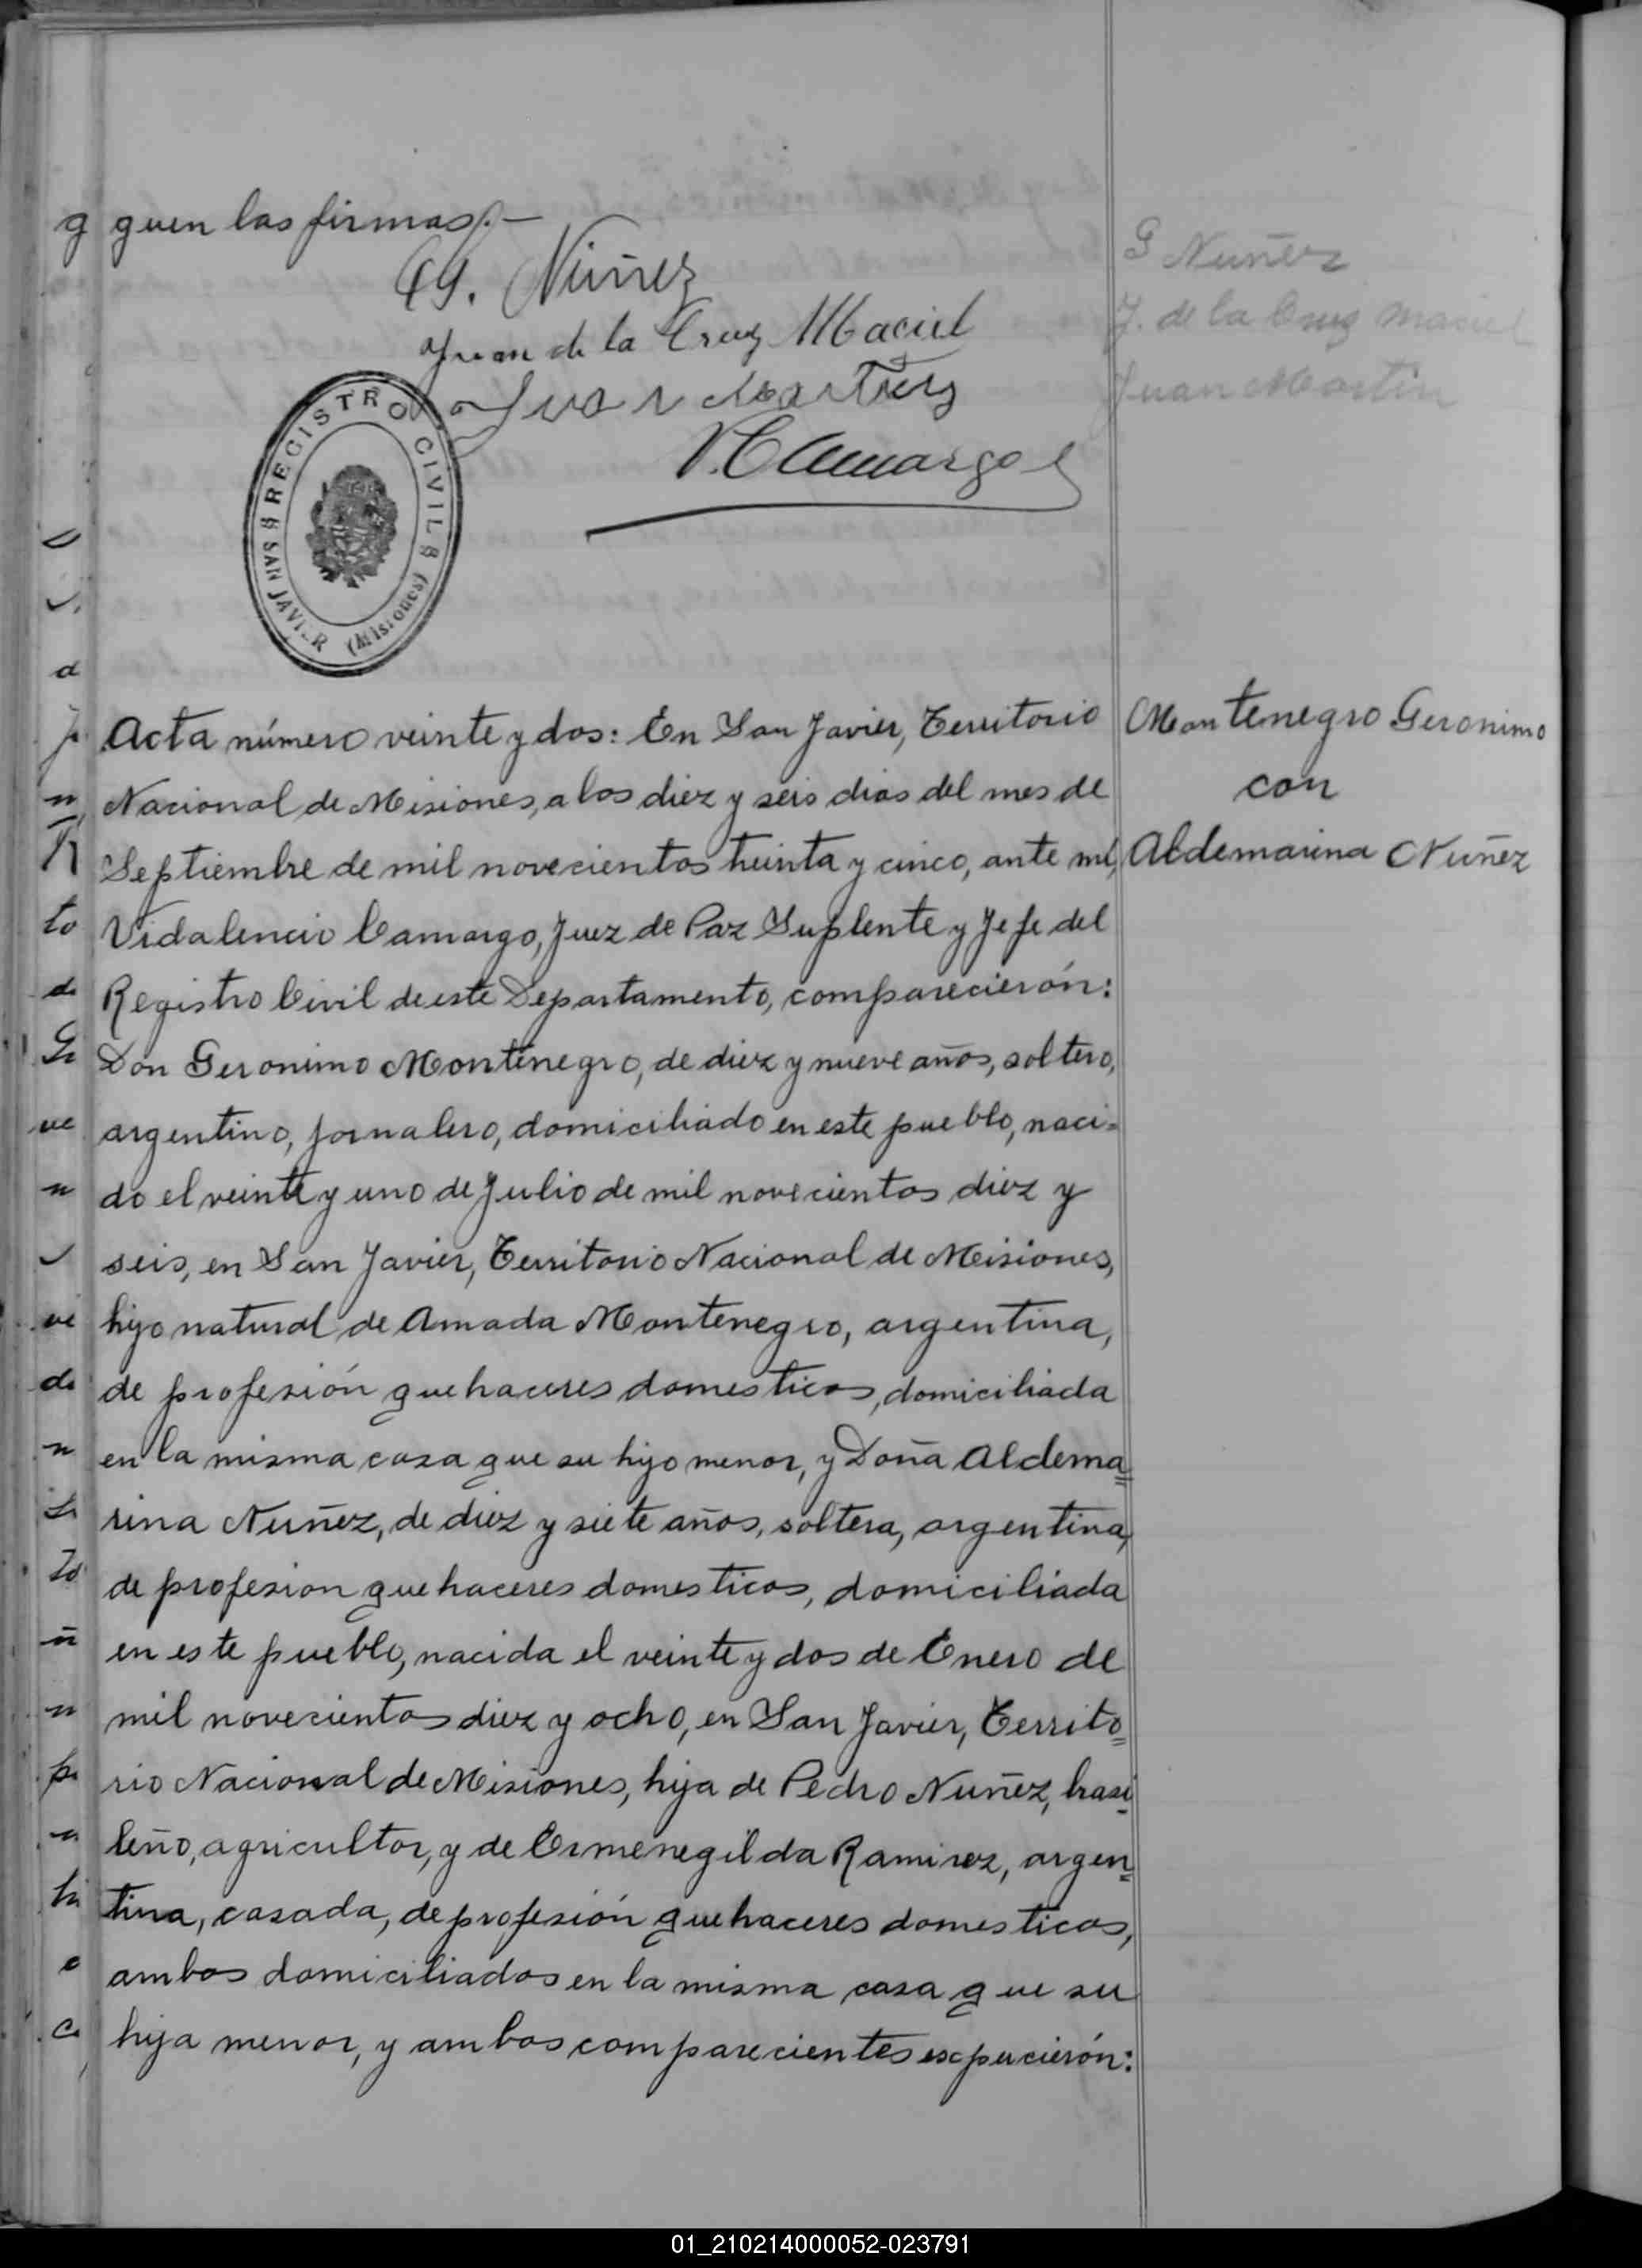 guen las firmas/.—
G. Nuñez
Juan de la Cruz Maciel
Juan Martin
V. Camargo
REGISTRO CIVIL
SAN JAVIER (Misiones)
G Nuñez
J. de la Cruz Maciel
Juan Martin
Montenegro Geronimo
con
Aldemarina Nuñez
Acta número veinte y dos: En San Javier, Territorio
Nacional de Misiones, a los diez y seis dias del mes de
Septiembre de mil novecientos treinta y cinco, ante mi,
Vidalencio Camargo, Juez de Paz Suplente y Jefe del
Registro Civil de este Departamento, comparecierón:
Don Geronimo Montenegro, de diez y nueve años, soltero,
argentino, jornalero, domiciliado en este pueblo, naci-
do el veinte y uno de Julio de mil novecientos diez y
seis, en San Javier, Territorio Nacional de Misiones,
hijo natural de Amada Montenegro, argentina,
de profesión quehaceres domesticos, domiciliada
en la misma casa que su hijo menor, y Doña Aldema=
rina Nuñez, de diez y siete años, soltera, argentina,
de profesion quehaceres domesticos, domiciliada
en este pueblo, nacida el veinte y dos de Enero de
mil novecientos diez y ocho, en San Javier, Territo=
rio Nacional de Misiones, hija de Pedro Nuñez, brasi=
leño, agricultor, y de Ermenegilda Ramirez, argen=
tina, casada, de profesión quehaceres domesticos,
ambos domiciliados en la misma casa que su
hija menor, y ambos comparecientes expucierón:
01_210214000052-023791